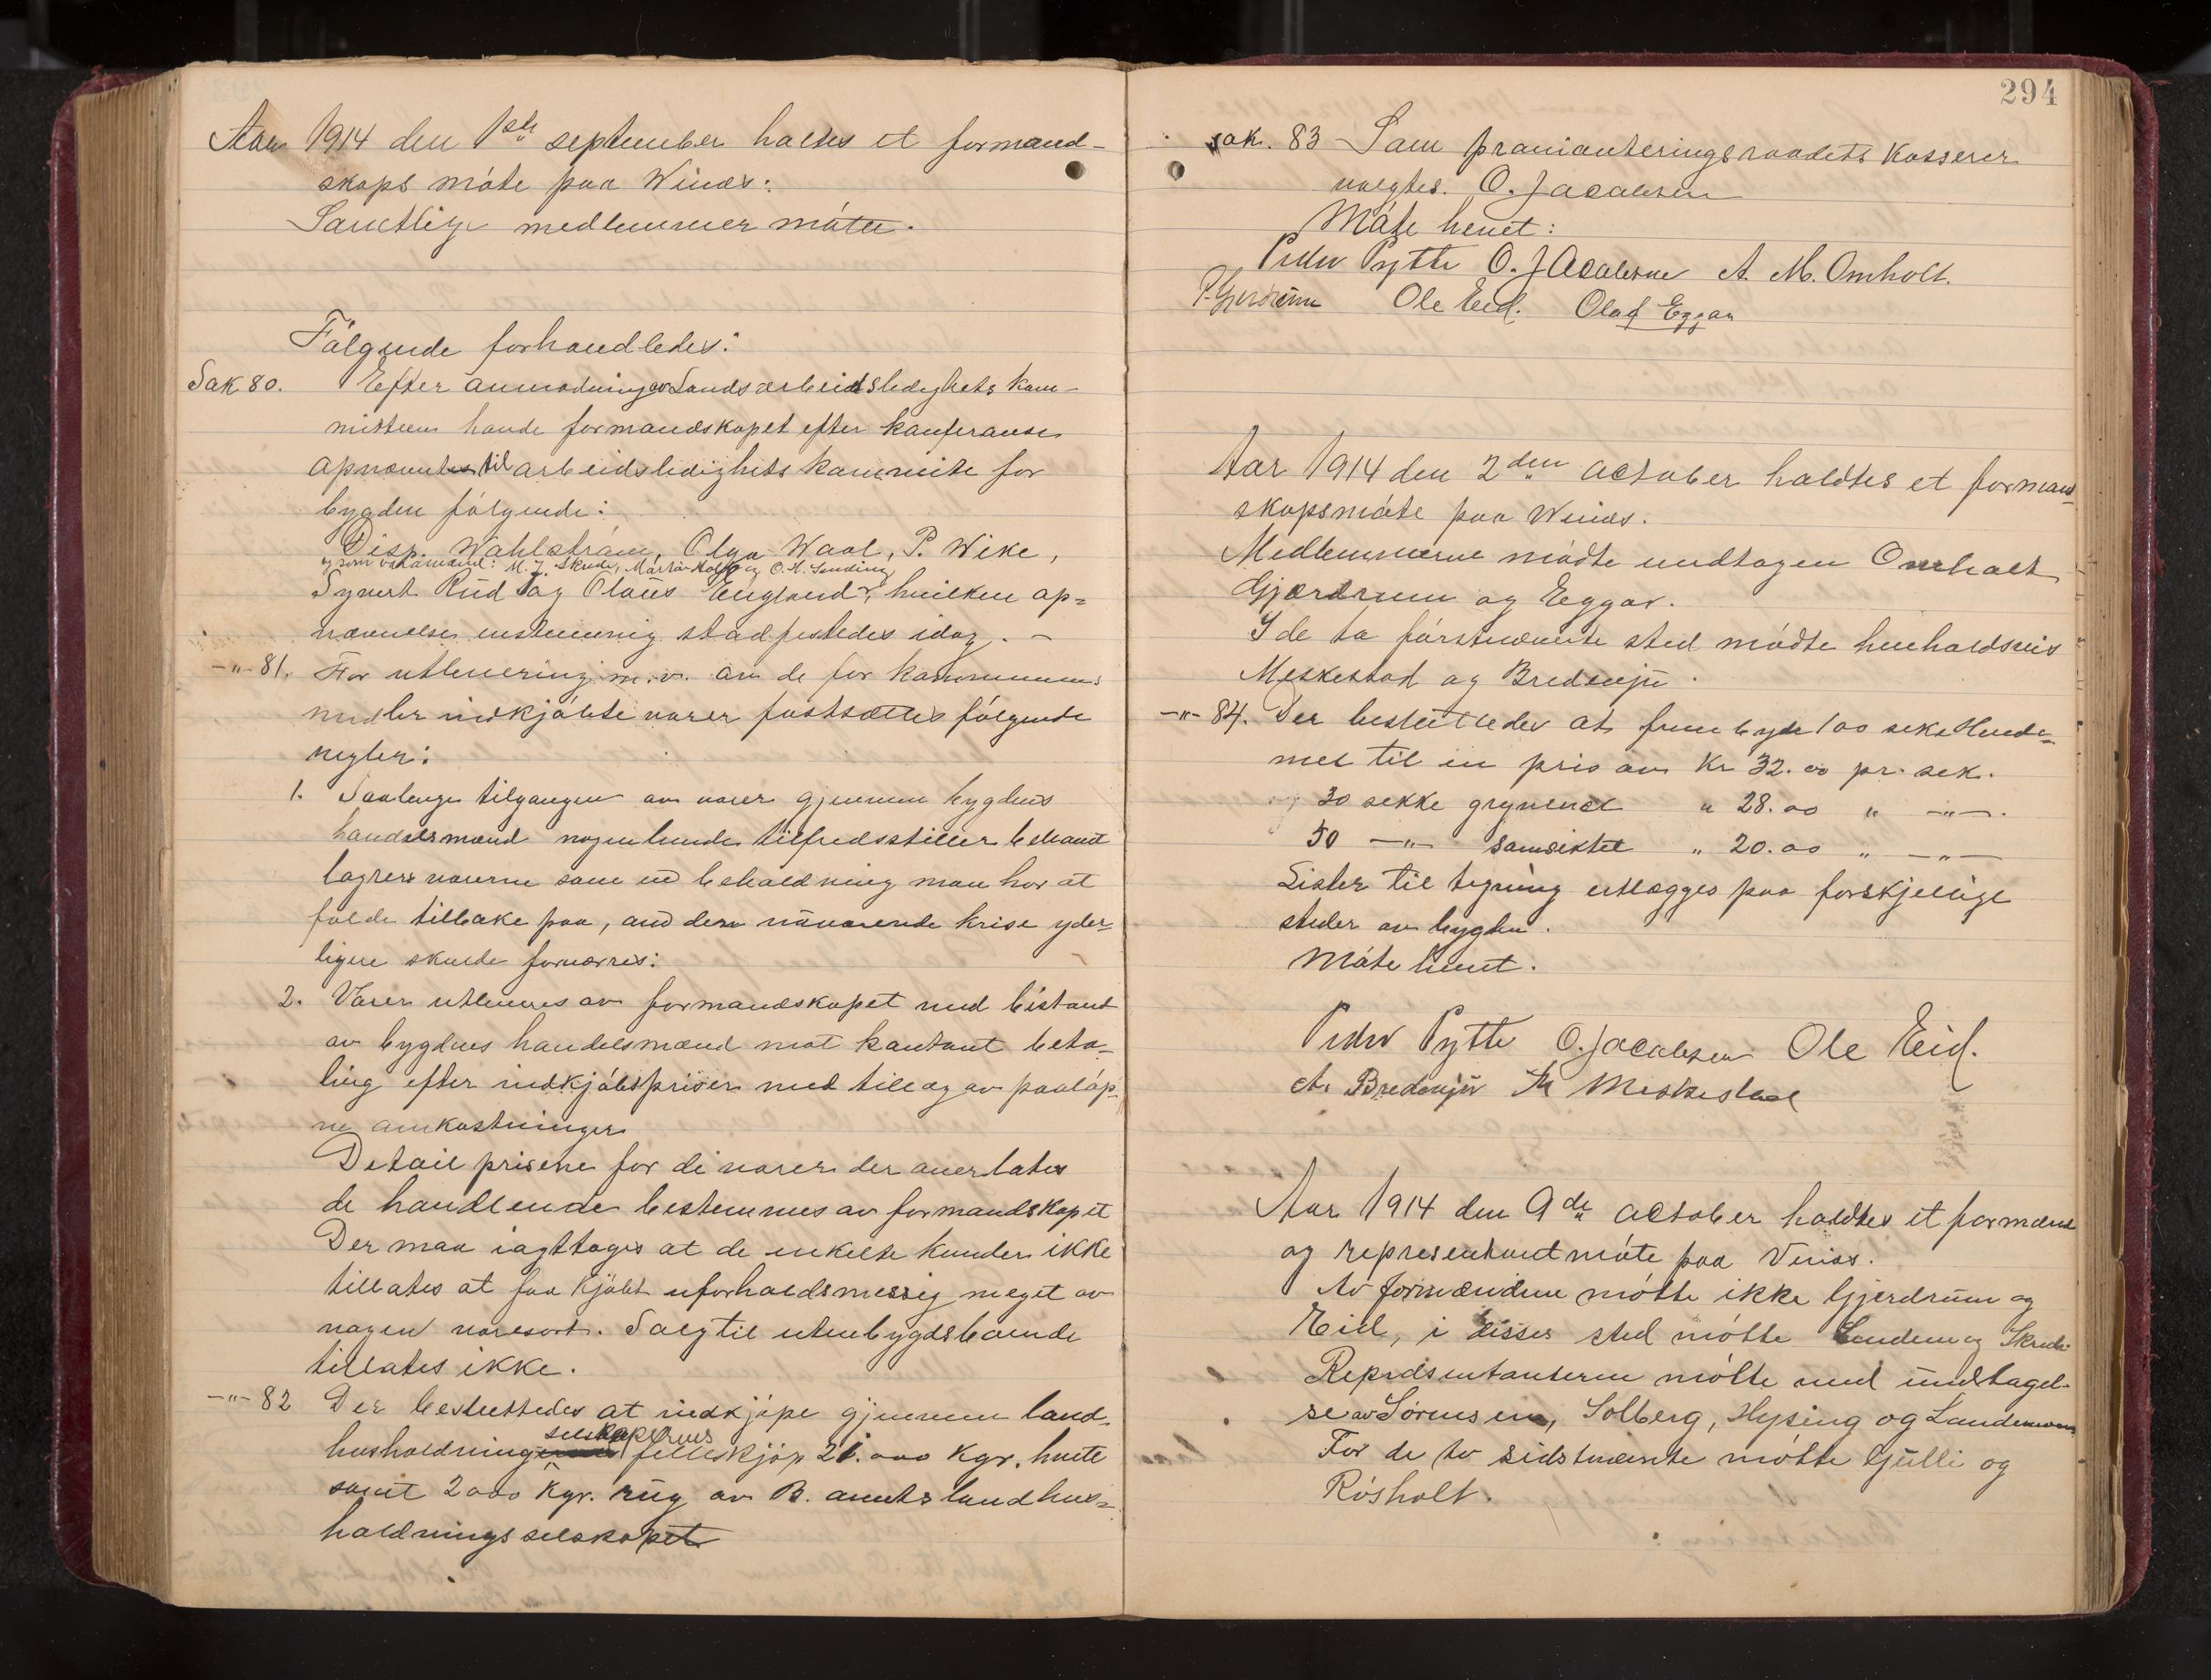 Aar 1914 den 1ste september holtes et formand-
skaps møte paa Winæs:
Samtlige medlemmer møtte.
Følgende forhandledes:
Sak 80. Efter anmodning av Landsarbeidsledighets kom-
mitteen havde formandskapet efter konferanse
opnævnt til arbeidsledighets kommite for
bygden følgende:
Disp. Wahlstrøm, Olga Waal, P. Wike,
og som varamænd: M. J. Skrede, Martin Kolf og O. H. Sending
Syvert Rud og Olaus Englund, hvilken op=
nævnelse enstemmig stadfestedes idag. –
–"– 81. For utlevering m.v. av de for kommunens
midler indkjøbte varer fastsættes følgende
regler:
1. Saalenge tilgangen av varer gjennem bygdens
handelsmænd nogenlunde tilfredsstiller behovet
lagres varerne som en beholdning man har at
falde tilbake paa, om den nuværende krise yder-
ligere skulde forværres:
2. Varer utleveres av formandskapet med bistand
av bygdens handelsmænd mot kontant beta-
ling efter indkjøbspriser med tillæg av paaløp-
ne omkostninger
Detail prisene for de varer der overlates
de handlende bestemmes av formandskapet
Der maa iagttages at de enkelte kunder ikke
tillates at faa kjøbt uforholdsmessig meget av
nogen varesort. Salg til utenbygdsboende
tillates ikke.
–"– 82 Der besluttedes at indkjøpe gjennem land-
selskapernes
husholdnings felleskjøp 21.000 kgr. hvete
samt 2000 kgr. rug av B. amts landhus=
holdningsselskapet
294
Sak. 83 Som provianteringsraadets kasserer
valgtes. O. Jacobsen
Møte hevet:
Peder Pytte O. Jacobsen A. M. Omholt.
P. Gjerdrum Ole Eid. Olaf Eggar
Aar 1914 den 2den october holdtes et formand
skapsmøte paa Winæs.
Medlemmerne mødte undtagen Omholt
Gjærdrum og Eggar.
I de to førstnævnte sted mødte henholdsvis
Meskestad og Bredenju.
–"– 84. Der besluttedes at frembyde 100 sekke Hvede-
mel til en pris av Kr 32.00 pr. sek.
30 sekke grynmel " 28.00 " –"–.
50 –"– samsiktet " 20.00 " –"–
Lister til tegning utlægges paa forskjellige
steder av bygden.
Møte hevet.
Peder Pytte O. Jacobsen Ole Eid.
A. Bredenju M Meskestad
Aar 1914 den 9de october holdtes et formænd
og representantmøte paa Vinæs.
Av formændene møtte ikke Gjerdrum og
Eid, i disses sted møtte Lunden og Skrede
Repræsentanterne møtte med undtagel-
se av Sørensen, Solberg, Hysing og Landemoen
For de to sidstnævnte møtte Gulli og
Røsholt.